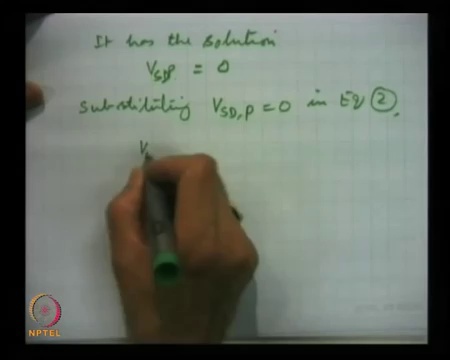 It has the solution
V_SD,P = 0
Substituting V_SD,P = 0 in Eq ②,
V
NPTEL